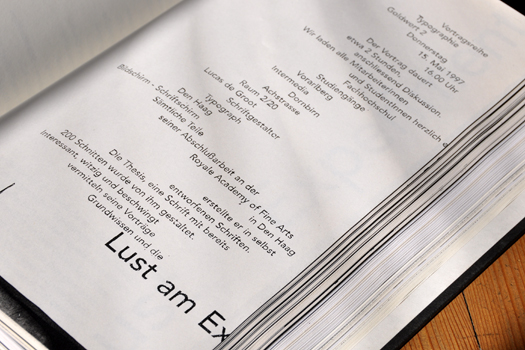 Vortragsreihe
Typographie
Goldwert 2
Donnerstag
15. Mai 1997
16.00 Uhr
Der Vortrag dauert
etwa 2 Stunden.
anschliessend Diskussion.
Wir laden alle Mitarbeiterinnen
und Studentinnen herzlich
Fachhochschul
Studiengänge
Vorarlberg
Intermedia
Dornbirn
Achstrasse
Raum 2/20
Lucas de Groot
Schriftgestalter
Typograph
Den Haag
Bildschirm - Schriftschirm
Sämtliche Teile
seiner Abschlußarbeit an der
Royale Academy of Fine Arts
in Den Haag
erstellte er in selbst
entworfenen Schriften.
Die Thesis, eine Schrift mit bereits
200 Schnitten wurde von ihm gestaltet.
Interessant, witzig und beschwingt
vermitteln seine Vorträge
Grundwissen und die
Lust am Ex